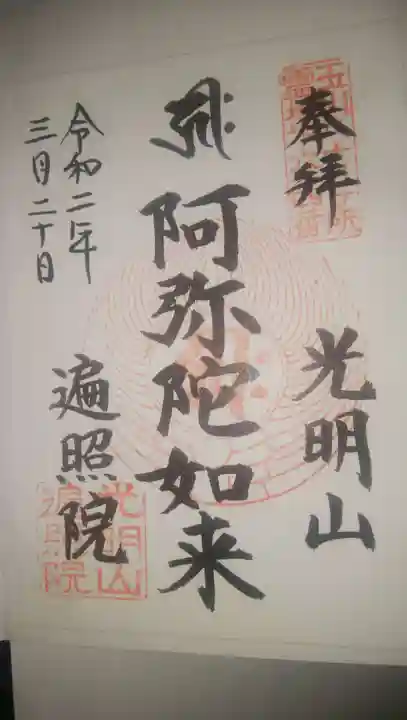 奉拝
光明山
阿弥陀如来
遍照院
令和二年
三月二十日
光明山
遍照院